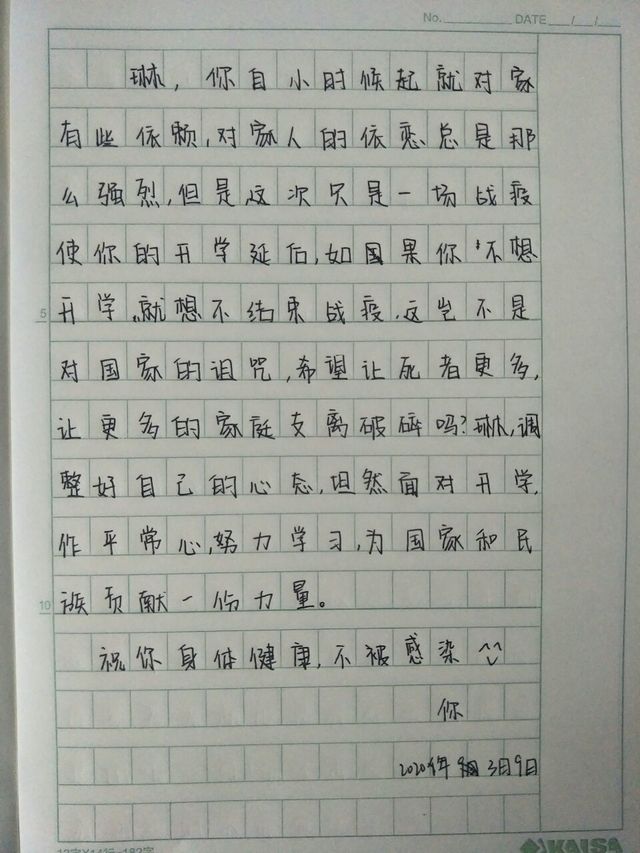 No. DATE / /
琳，你自小时候起就对家
有些依赖，对家人的依恋总是那
么强烈，但是这次只是一场战疫
使你的开学延后，如国果你不想
5 开学，就想不结束战疫，这岂不是
对国家的诅咒，希望让死者更多，
让更多的家庭支离破碎吗？琳，调
整好自己的心态，坦然面对开学，
作平常心，努力学习，为国家和民
10 族贡献一份力量。
祝你身体健康，不被感染^^
你
2020年 3月9日
KAISA